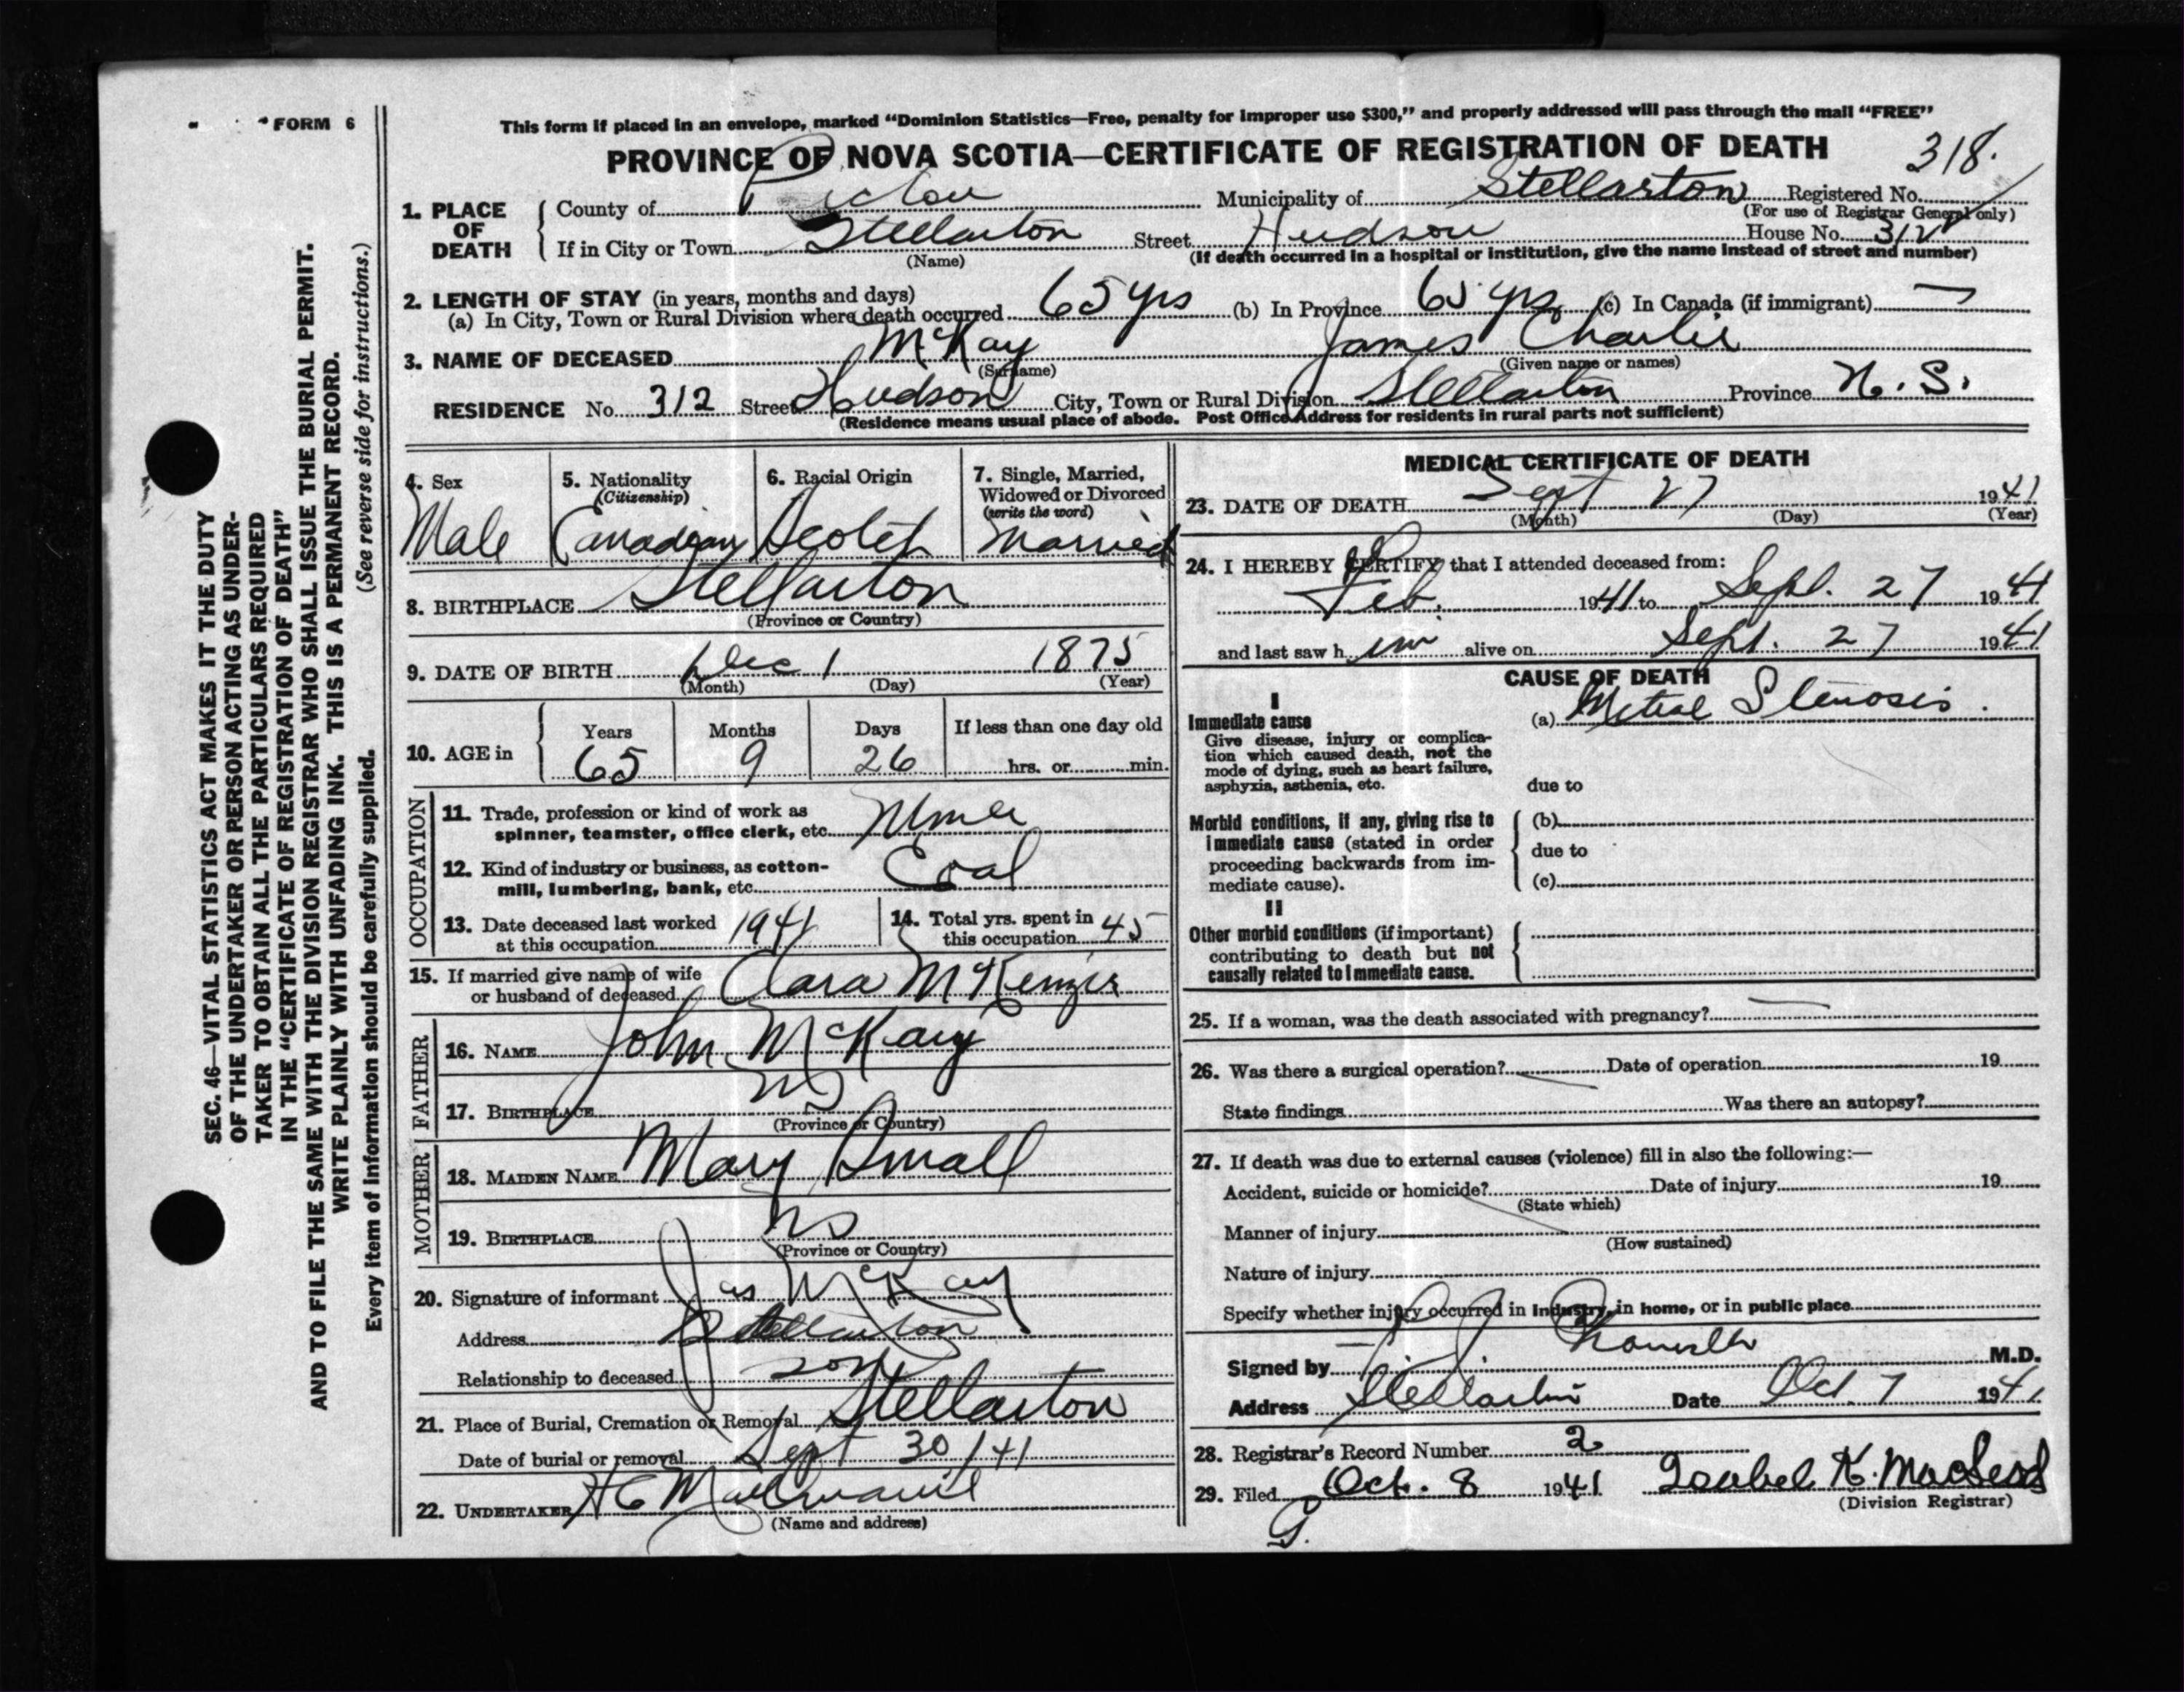 FORM 6
This form if placed in an envelope, marked "Dominion Statistics—Free, penalty for improper use $300," and properly addressed will pass through the mail "FREE"
PROVINCE OF NOVA SCOTIA—CERTIFICATE OF REGISTRATION OF DEATH 318.
1. PLACE OF DEATH County of Pictou Municipality of Stellarton Registered No.
(For use of Registrar General only)
If in City or Town Stellarton Street Hudson House No. 312
(Name) (If death occurred in a hospital or institution, give the name instead of street and number)
2. LENGTH OF STAY (in years, months and days)
(a) In City, Town or Rural Division where death occurred 65 yrs (b) In Province 65 yrs (c) In Canada (if immigrant) —
3. NAME OF DECEASED McKay James Charlie
(Surname) (Given name or names)
RESIDENCE No. 312 Street Hudson City, Town or Rural Division Stellarton Province N. S.
(Residence means usual place of abode. Post Office Address for residents in rural parts not sufficient)
4. Sex Male
5. Nationality (Citizenship) Canadian
6. Racial Origin Scotch
7. Single, Married, Widowed or Divorced (write the word) Married
8. BIRTHPLACE Stellarton
(Province or Country)
9. DATE OF BIRTH Dec 1 1875
(Month) (Day) (Year)
10. AGE in Years Months Days If less than one day old
65 9 26 hrs. or min.
OCCUPATION
11. Trade, profession or kind of work as
spinner, teamster, office clerk, etc. Miner
12. Kind of industry or business, as cotton-
mill, lumbering, bank, etc. Coal
13. Date deceased last worked
at this occupation 1941
14. Total yrs. spent in
this occupation 45
15. If married give name of wife
or husband of deceased Clara McKenzie
FATHER
16. NAME John McKay
17. BIRTHPLACE NS
(Province or Country)
MOTHER
18. MAIDEN NAME Mary Small
19. BIRTHPLACE NS
(Province or Country)
20. Signature of informant Jas McKay
Address Stellarton
Relationship to deceased son
21. Place of Burial, Cremation or Removal Stellarton
Date of burial or removal Sept 30/41
22. UNDERTAKER H C
(Name and address)
MEDICAL CERTIFICATE OF DEATH
23. DATE OF DEATH Sept 27 1941
(Month) (Day) (Year)
24. I HEREBY CERTIFY that I attended deceased from:
Feb. 1941 to Sept. 27 1941
and last saw h im alive on Sept. 27 1941
CAUSE OF DEATH
I
Immediate cause (a) Mitral Stenosis.
Give disease, injury or complica-
tion which caused death, not the
mode of dying, such as heart failure,
asphyxia, asthenia, etc. due to
Morbid conditions, if any, giving rise to (b)
immediate cause (stated in order due to
proceeding backwards from im-
mediate cause). (c)
II
Other morbid conditions (if important)
contributing to death but not
causally related to immediate cause.
25. If a woman, was the death associated with pregnancy? —
26. Was there a surgical operation? Date of operation 19
State findings Was there an autopsy?
27. If death was due to external causes (violence) fill in also the following:—
Accident, suicide or homicide? Date of injury 19
(State which)
Manner of injury
(How sustained)
Nature of injury
Specify whether injury occurred in industry, in home, or in public place
Signed by M.D.
Address Stellarton Date Oct. 7 1941
28. Registrar's Record Number 2
29. Filed Oct. 8 1941 Isabel K. MacLeod
(Division Registrar)
G.
SEC. 46—VITAL STATISTICS ACT MAKES IT THE DUTY
OF THE UNDERTAKER OR PERSON ACTING AS UNDER-
TAKER TO OBTAIN ALL THE PARTICULARS REQUIRED
IN THE "CERTIFICATE OF REGISTRATION OF DEATH"
AND TO FILE THE SAME WITH THE DIVISION REGISTRAR WHO SHALL ISSUE THE BURIAL PERMIT.
WRITE PLAINLY WITH UNFADING INK. THIS IS A PERMANENT RECORD.
(See reverse side for instructions.)
Every item of information should be carefully supplied.